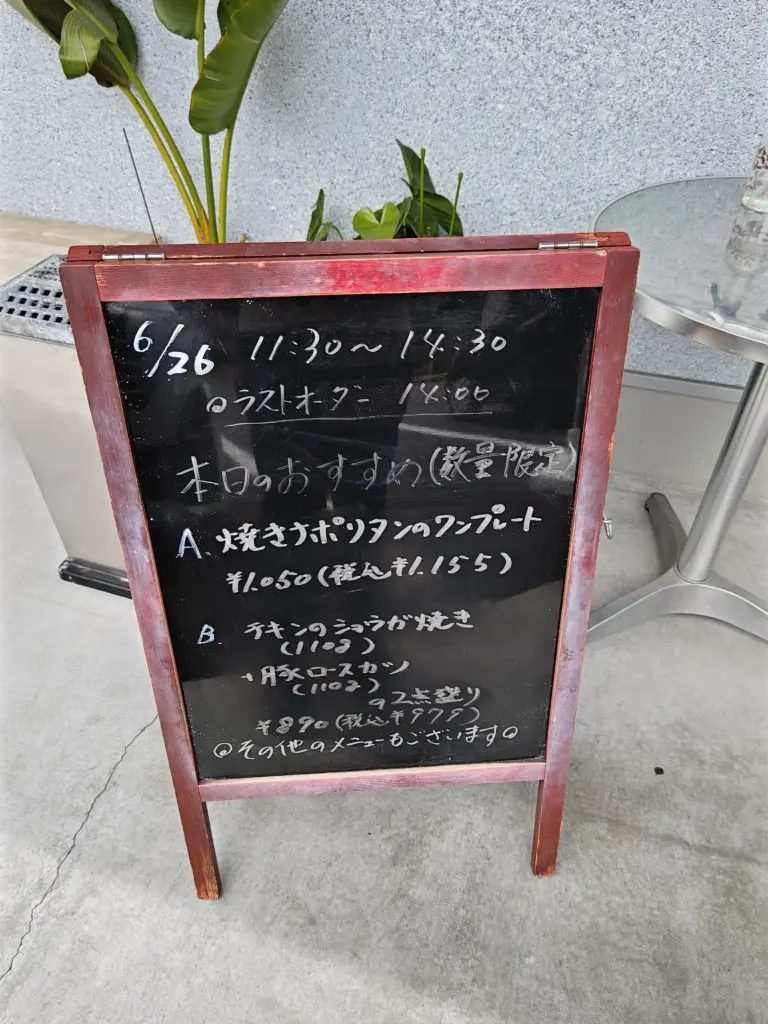 6/26 11:30〜14:30
◎ラストオーダー 14:00
本日のおすすめ(数量限定)
A. 焼きナポリタンのワンプレート
¥1.050(税込¥1.155)
B. チキンのショウガ焼き
(110g)
+豚ロースカツ
(110g)
の2点盛り
¥890(税込¥979)
◎その他のメニューもございます◎